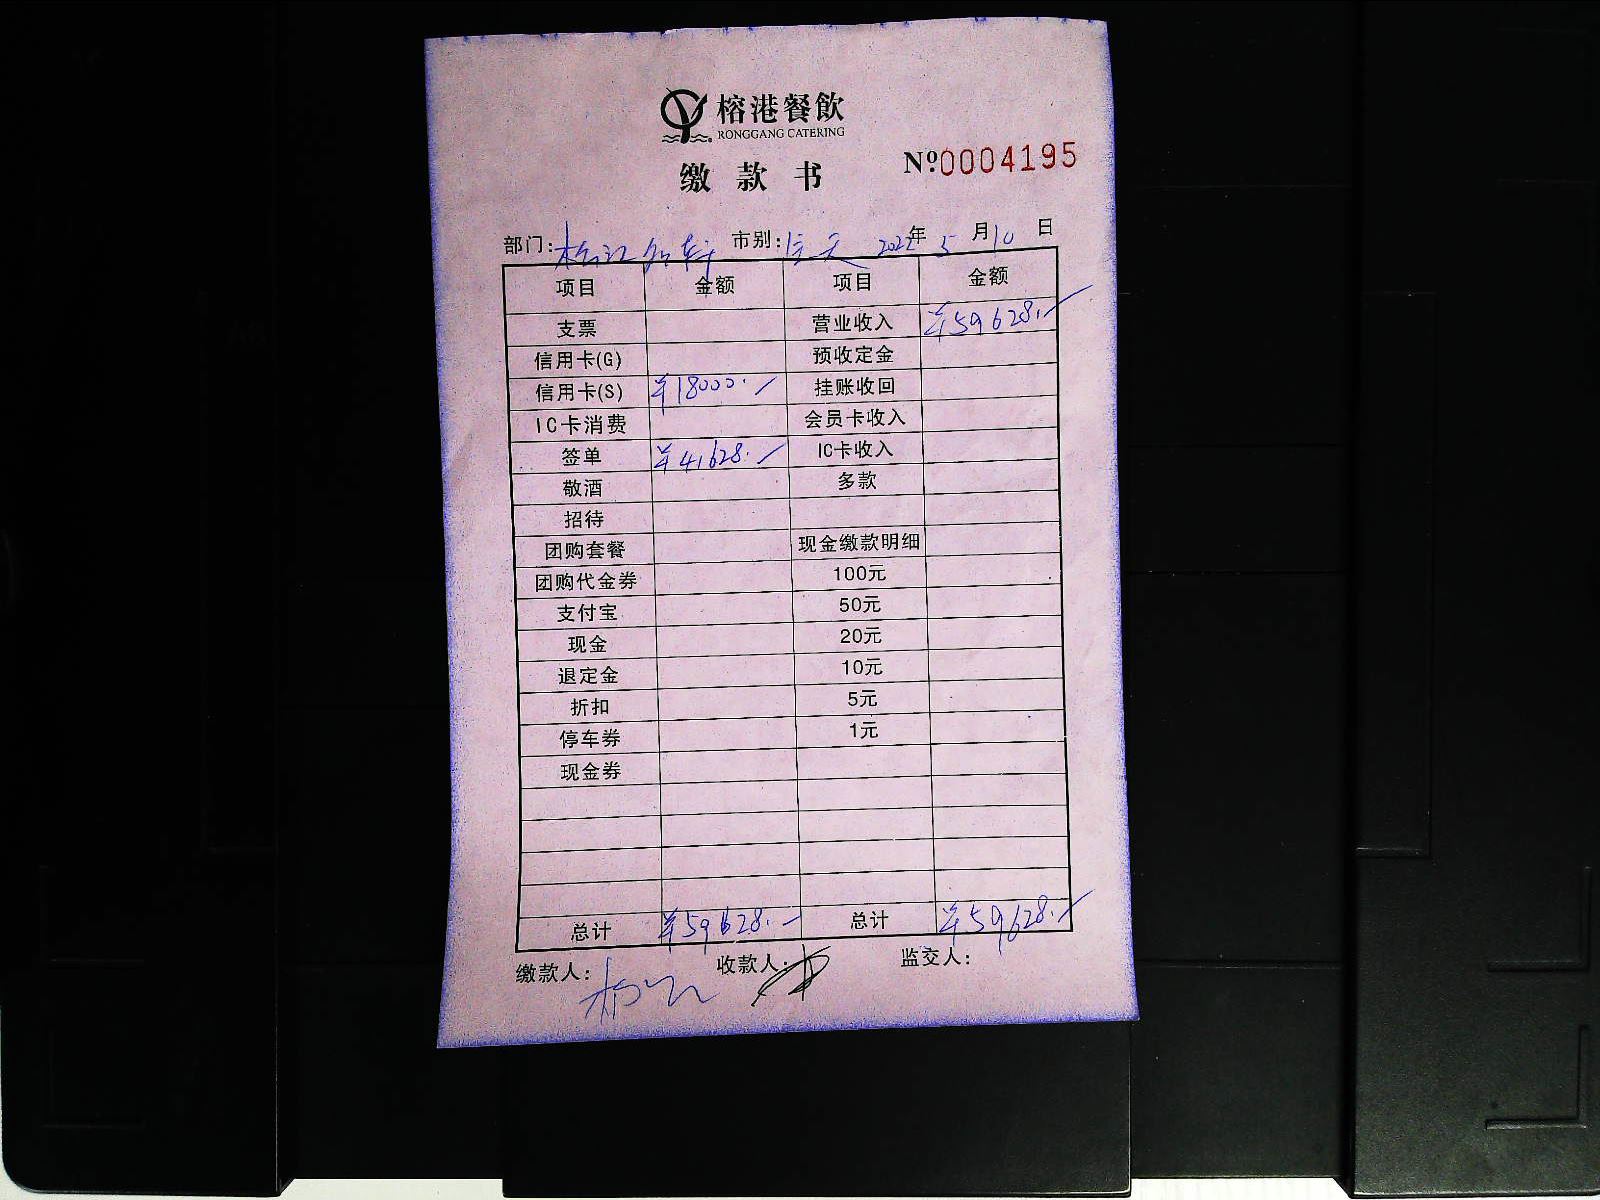 榕港餐飲
RONGGANG CATERING
缴款书
Nº0004195
部门: 市别:全天 2022年5月10日
项目 金额 项目 金额
支票 营业收入 ¥59628.-
信用卡(G) 预收定金
信用卡(S) ¥18000.- 挂账收回
IC卡消费 会员卡收入
签单 ¥41628.- IC卡收入
敬酒 多款
招待
团购套餐 现金缴款明细
团购代金券 100元
支付宝 50元
现金 20元
退定金 10元
折扣 5元
停车券 1元
现金券
总计 ¥59628.- 总计 ¥59628.-
缴款人: 收款人: 监交人: